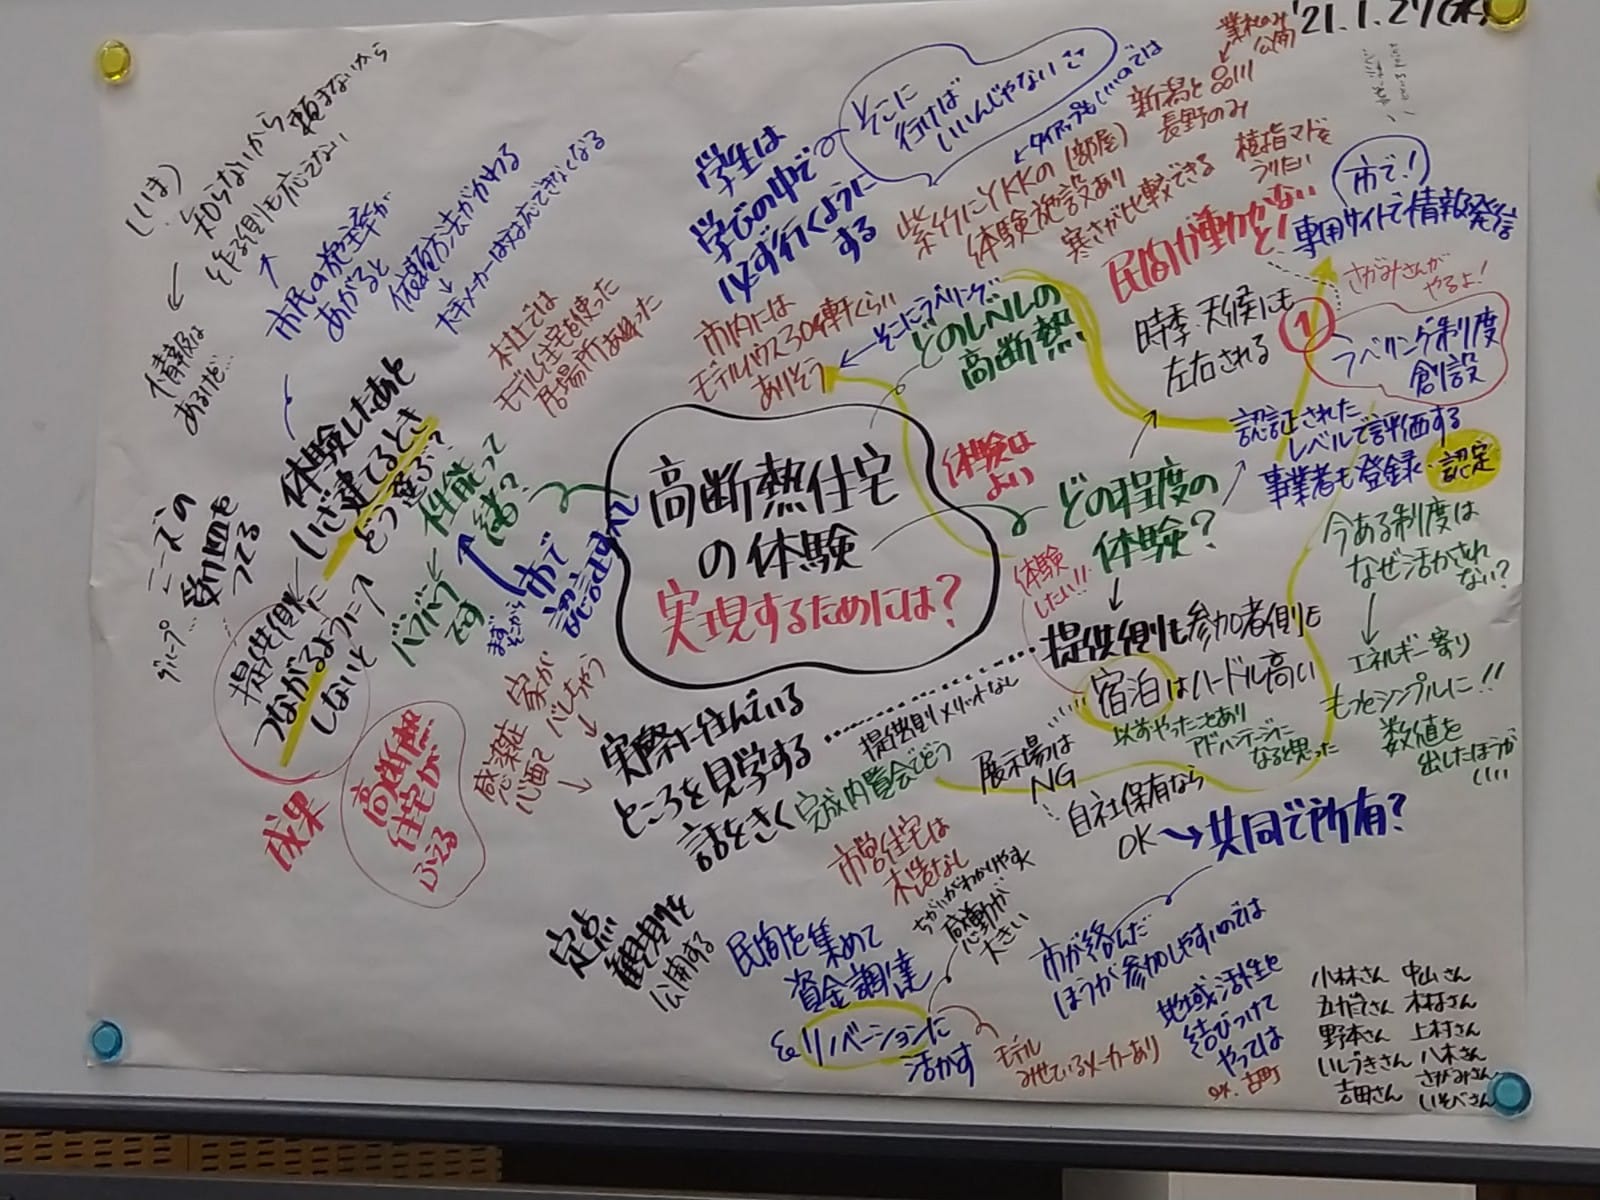 '21.1.27(水)
業社のみ
公開
新潟と品川
長野のみ
そこに
行けば
いいんじゃない?
タイアップもいいのでは
学生は
学びの中で
必ず行くように
する
紫竹にYKKの(部屋)
体験施設あり
寒さが比較できる
樹脂マドを
つけたい
市で!
専用サイトで情報発信
民間が動かない
と!
さがみさんが
やるよ!
①
ラベリング制度
創設
時季・天候にも
左右される
そこにラベリング
どのレベルの
高断熱
市内には
モデルハウス30軒くらい
ありそう
認証された
レベルで評価する
事業者も登録・認定
今ある制度は
なぜ活かされ
ない?
エネルギー寄り
もっとシンプルに!!
数値を
出したほうが
いい
体験は
よい
どの程度の
体験?
体験
したい!!
高断熱住宅
の体験
実現するためには?
提供側も参加者側も
宿泊はハードル高い
以前やったことあり
アドバンテージに
なると思った
提供側メリットなし
展示場は
NG
自社保有なら
OK→共同で所有?
実際に住んでいる
ところを見学する
話をきく
完成内覧会でどう
市営住宅は
木造なし
ちがいがわかりやすく
感動が
大きい
定点
観測を
公開する
民間を集めて
資金調達
& リノベーションに
活かす
モデル
みせているメーカーあり
市が絡んだ
ほうが参加しやすいのでは
地域活性と
結びつけて
やっては
ex. 古町
頼まないから
知らないから
作る側も応えない
情報は
あるけど…
市民の施主率が
あがると
依頼方法がかわる
大手メーカーは対応できなくなる
本社では
モデル住宅を使った
居場所あった
体験したあと
いざ建てるとき
どう選ぶ?
性能って
一緒?
バラバラ
です
市で
認証すべし
まず
そこから
ニーズの
受け皿を
つくる
グループ…
提供側に
つながるように
しないと
成果
高断熱
住宅が
ふえる
家が
バレちゃう
感染症
心配で
小林さん 中山さん
五十嵐さん 木村さん
野本さん 上村さん
いしづきさん 八木さん
吉田さん さがみさん
いそべさん